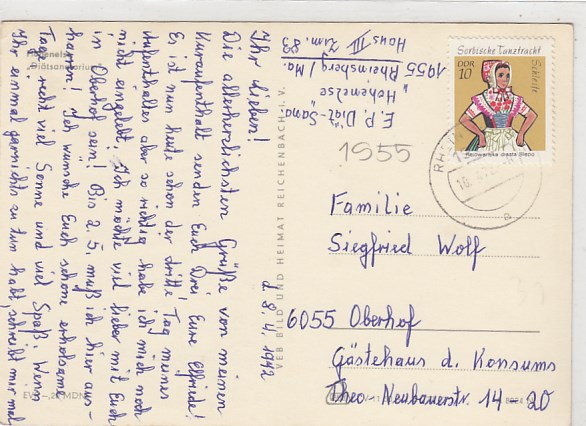 Hohenelse
"Diätsanatorium"
d 8. 4. 1972
Ihr Lieben!
Die allerherzlichsten Grüße von meinem
Kuraufenthalt senden Euch Drei Eure Elfriede!
Es ist nun heute schon der dritte Tag meines
Aufenthaltes aber so richtig habe ich mich noch
nicht eingelebt. Ich möchte viel lieber mit Euch
in Oberhof sein! Bis 2. 5. muß ich hier aus-
harren! Ich wünsche Euch schöne erholsame
Tage, recht viel Sonne und viel Spaß. Wenn
Ihr einmal garnichts zu tun habt, schreibt mir mal
E. P. Diät-Sana
"Hohenelse"
1955 Rheinsberg / Ma.
Haus III Zim. 83
EVP -,20 MDN
VEB BILD UND HEIMAT REICHENBACH i. V.
Sorbische Tanztracht
DDR
10
Schleife
1955
Familie
Siegfried Wolf
6055 Oberhof
Gästehaus d. Konsums
Theo-Neubauerstr. 14-20